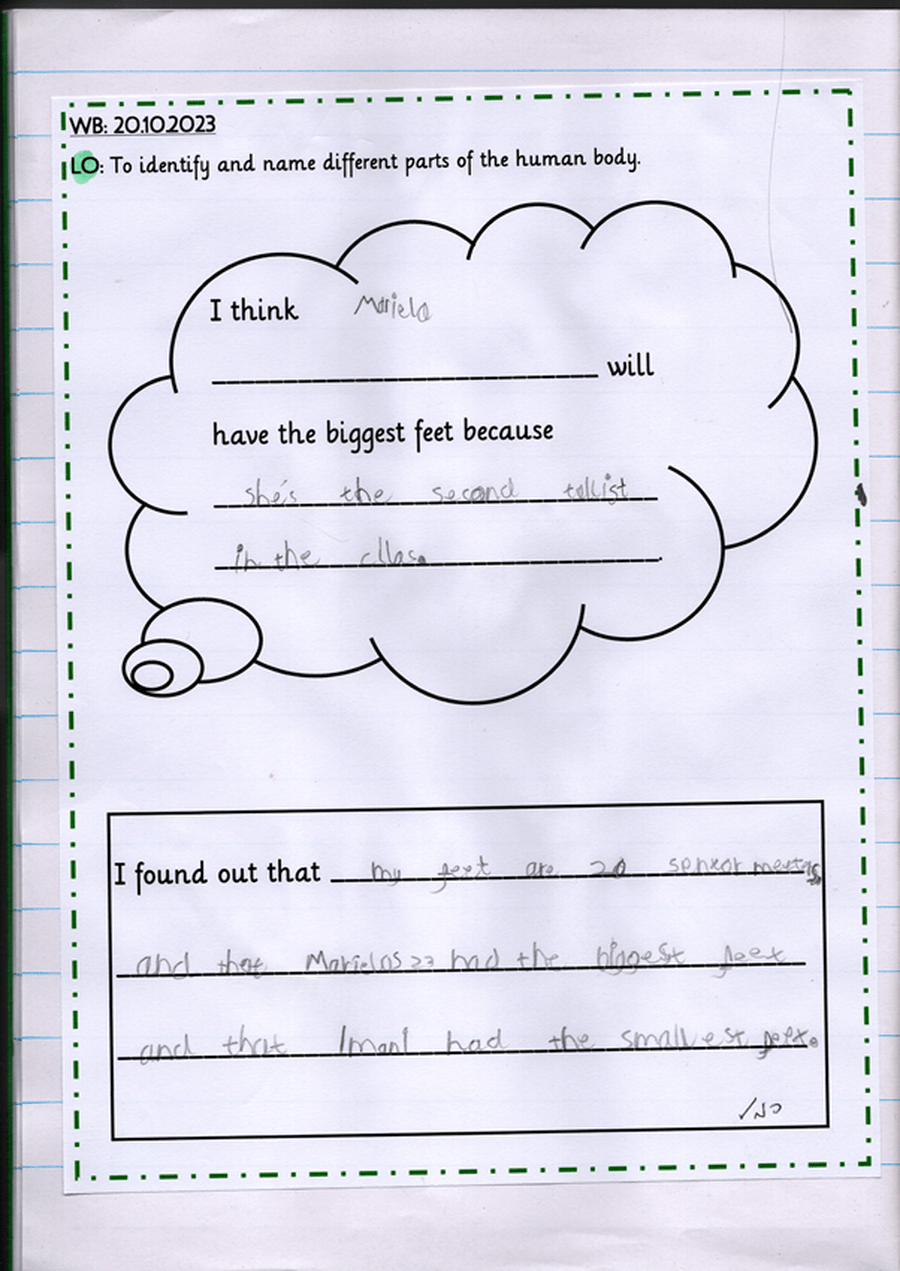 WB: 20.10.2023
LO: To identify and name different parts of the human body.
I think Mariela
will
have the biggest feet because
she's the second tallist
in the cllas.
I found out that my feet are 20
and that Marielas 22 had the biggest feet
and that Imani had the smallest feet.